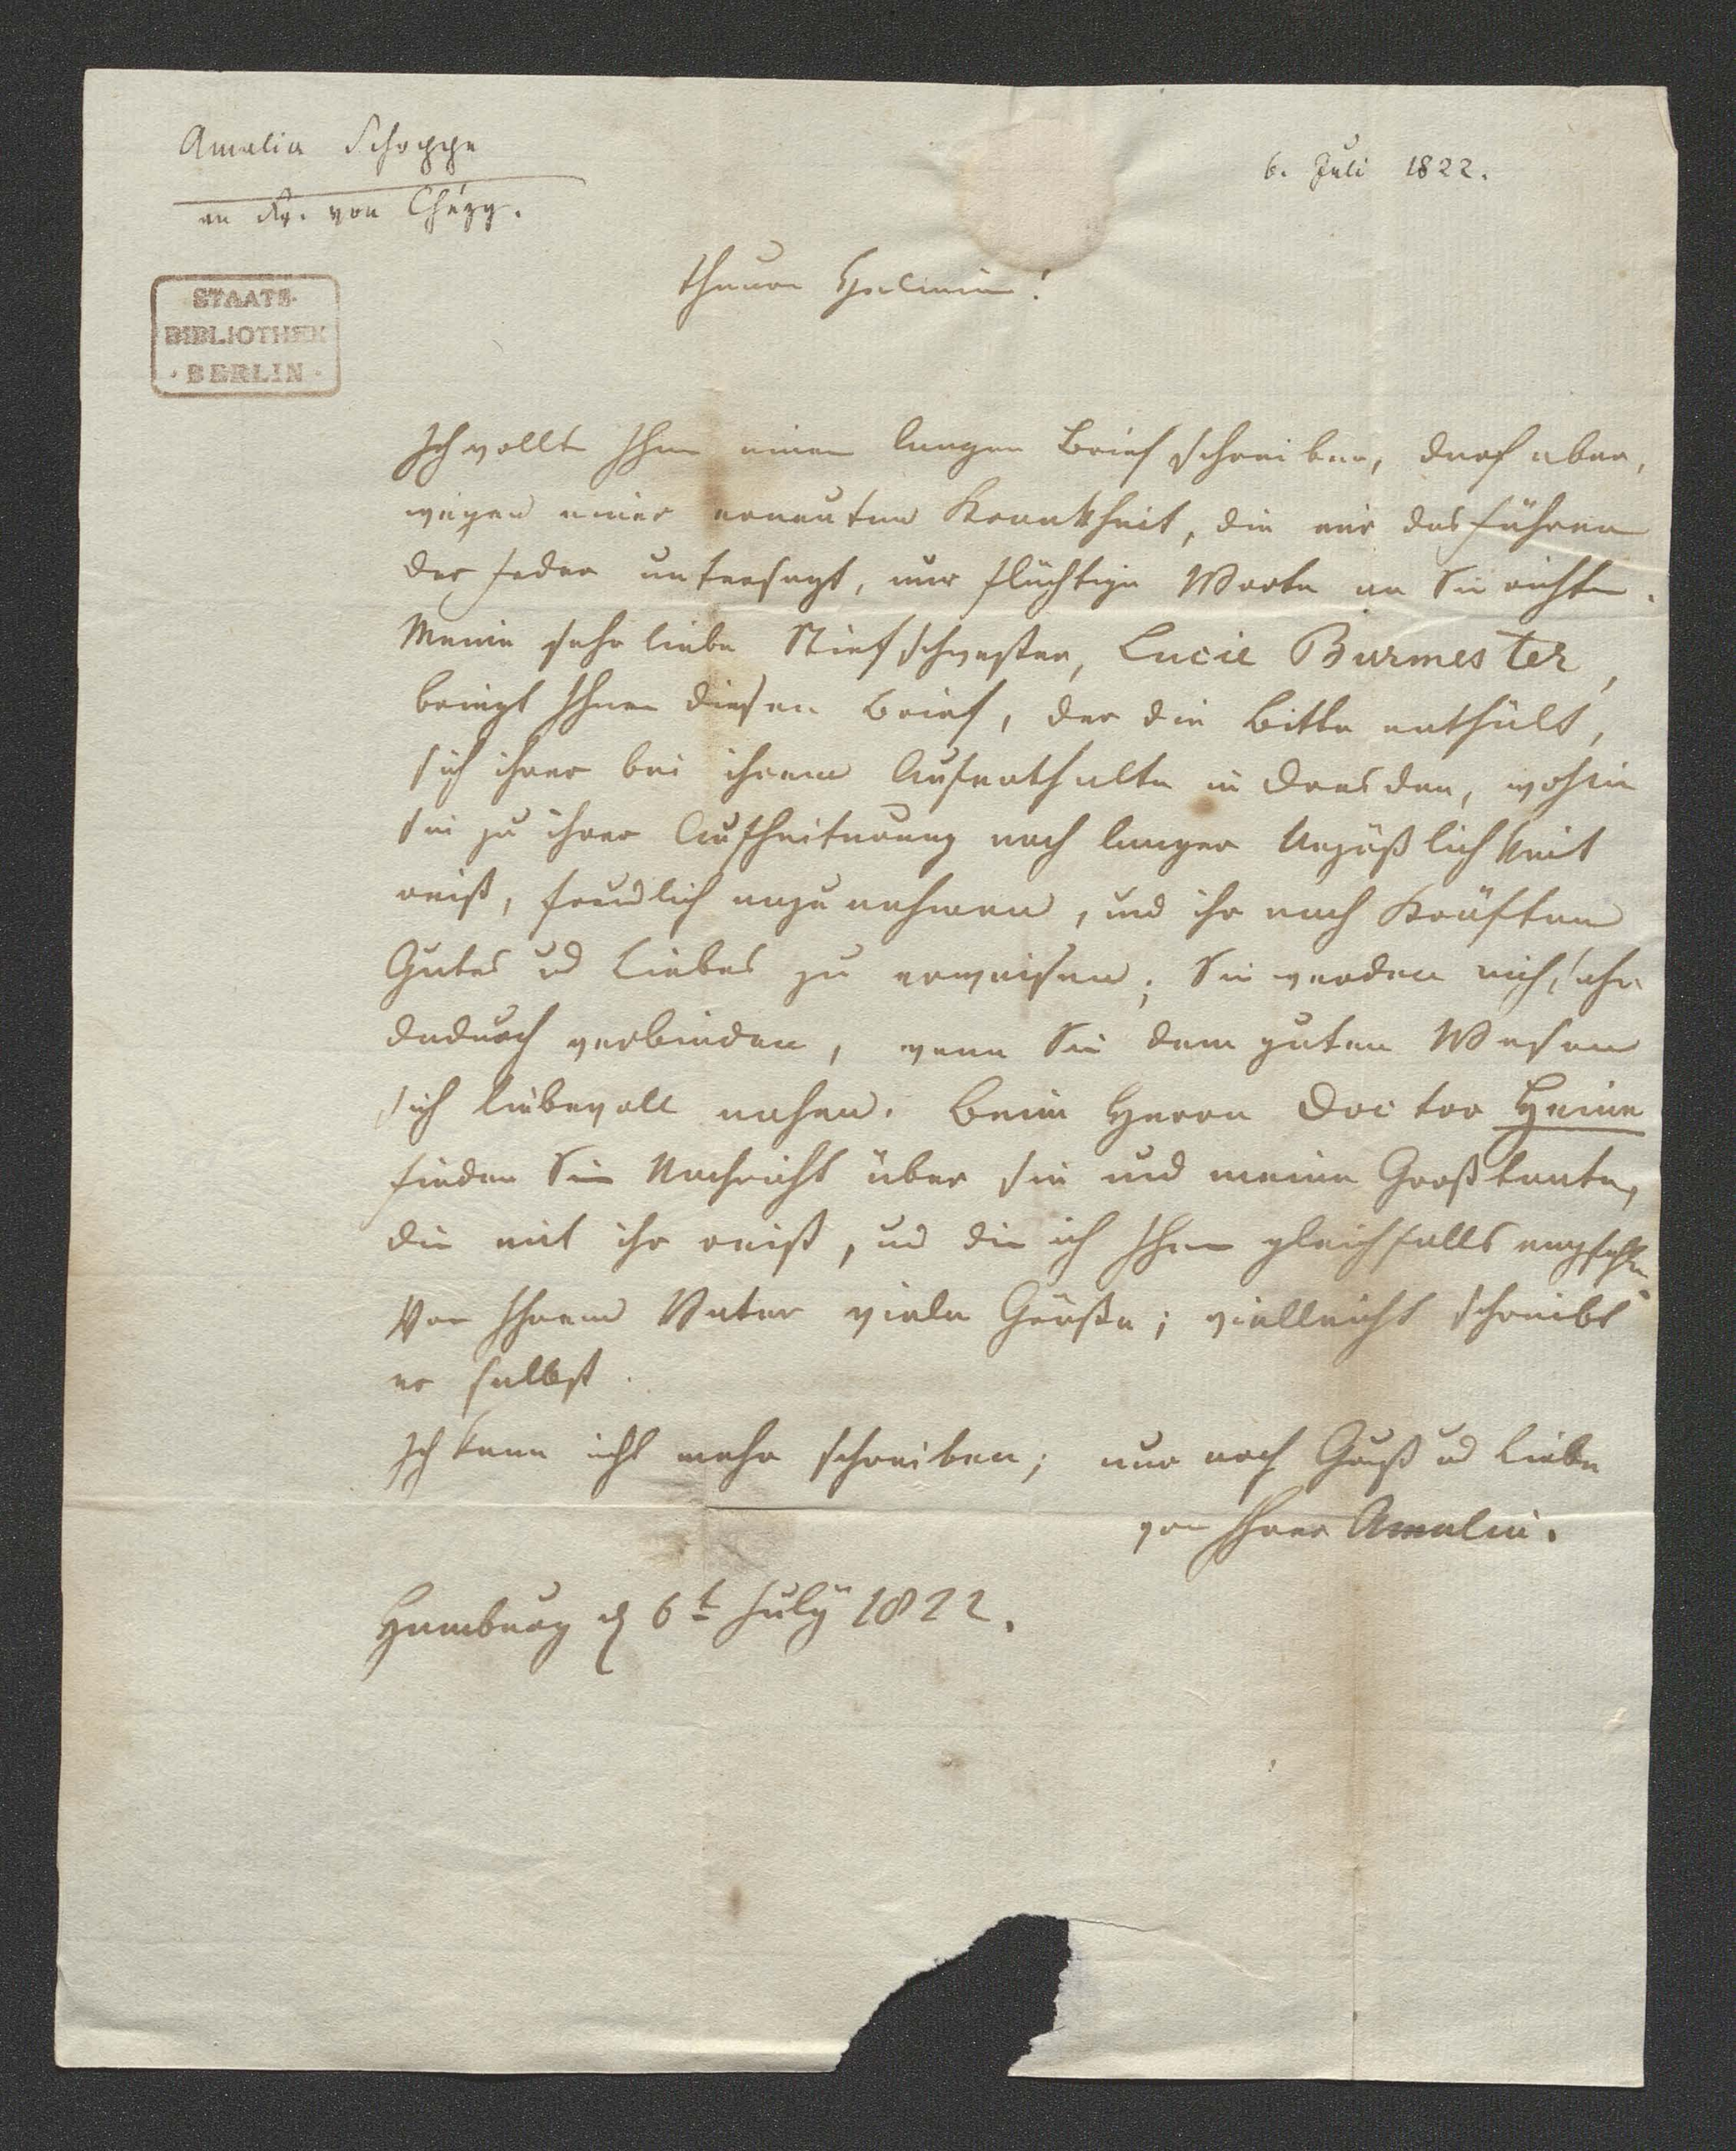 Amalia Schoppe
an Fr. von Chézy.
6. Juli 1822.
STAATS-
BIBLIOTHEK
· BERLIN ·
theure Helmina!
Ich wollte Ihnen einen langen Brief schreiben, darf aber,
wegen einer erneuten Krankheit, die mir das Führen
der Feder untersagt, nur flüchtige Worte an Sie richten.
Meine sehr liebe Stiefschwester, Lucie Burmester,
bringt Ihnen diesen Brief, der die Bitte enthält,
sich ihrer bei ihrem Aufenthalte in Dresden, wohin
sie zu ihrer Aufheiterung nach langer Unpäßlichkeit
reist, freundlich anzunehmen, und ihr nach Kräften
Gutes und Liebes zu erweisen; Sie werden mich sehr
dadurch verbinden, wenn Sie dem guten Wesen
sich liebevoll nahen. Beim Herrn Doctor Heine
finden Sie Nachricht über sie und meine Großtante,
die mit ihr reist, und die ich Ihnen gleichfalls empfehle.
Von Ihrem Vater viele Grüße; vielleicht schreibt
er selbst.
Ich kann nicht mehr schreiben; nur noch Gruß und Liebe
von Ihrer Amalie.
Hamburg d 6t July 1822.